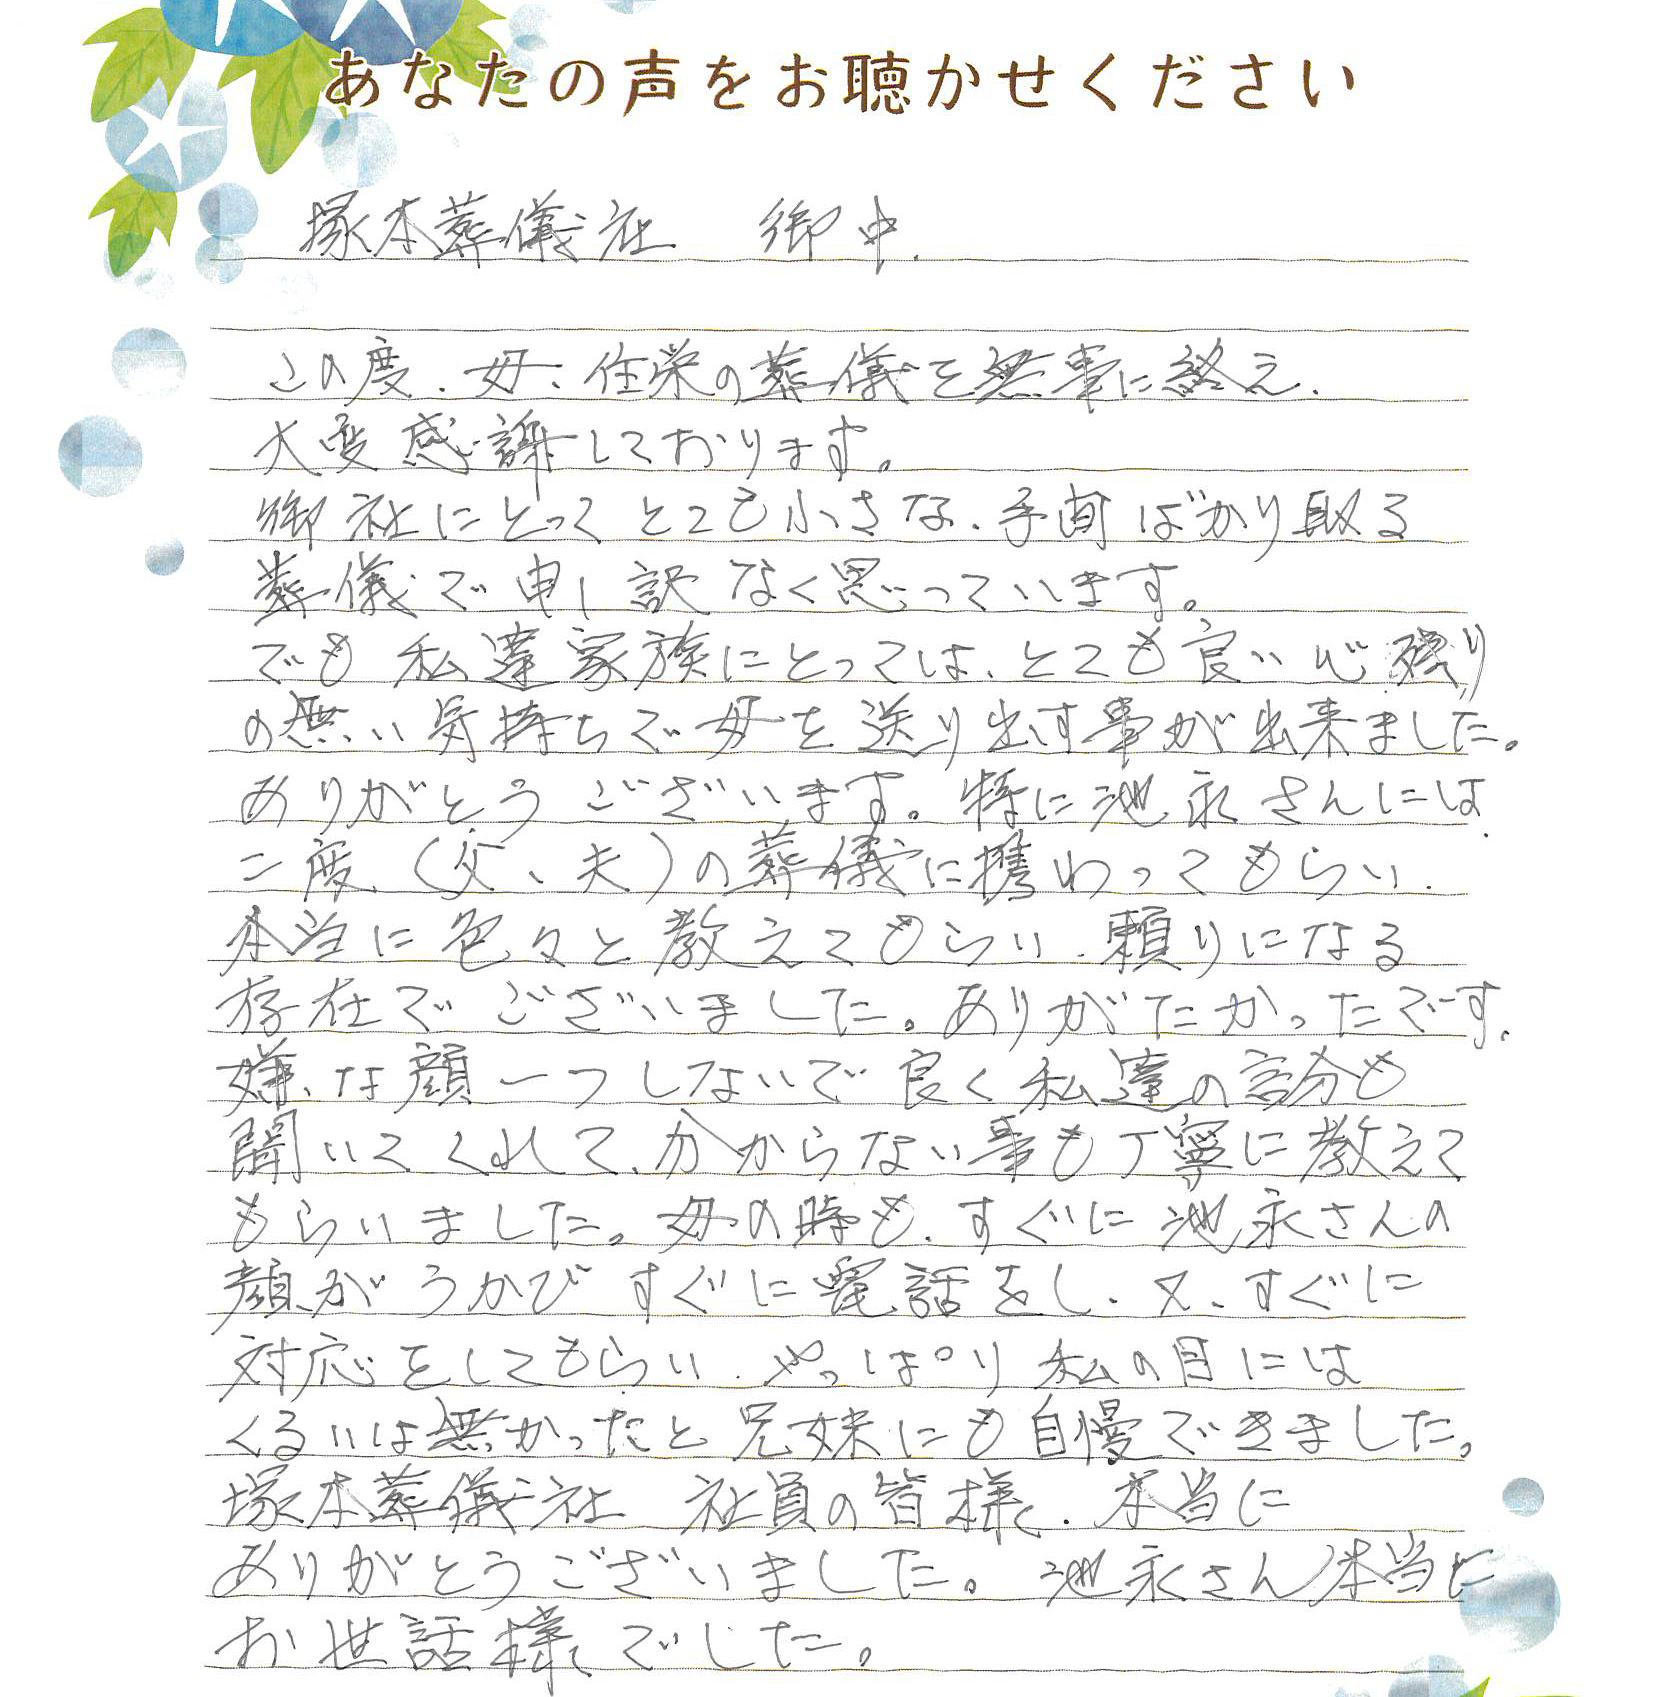 あなたの声をお聴かせください
塚本葬儀社 御中.
この度、母、住栄の葬儀を無事に終え、
大変感謝しております。
御社にとって とても小さな、手間ばかり取る
葬儀で申し訳なく思っています。
でも 私達家族にとっては、とても良い心残り
の無い気持ちで母を送り出す事が出来ました。
ありがとうございます。特に池永さんには
二度（父、夫）の葬儀に携わってもらい、
本当に色々と教えてもらい、頼りになる
存在でございました。ありがたかったです。
嫌な顔一つしないで良く私達の言分も
聞いてくれて、分からない事も丁寧に教えて
もらいました。母の時も、すぐに池永さんの
顔がうかび すぐに電話をし、又、すぐに
対応をしてもらい、やっぱり私の目には
くるいは無かったと兄妹にも自慢できました。
塚本葬儀社 社員の皆様、本当に
ありがとうございました。池永さん本当に
お世話様でした。